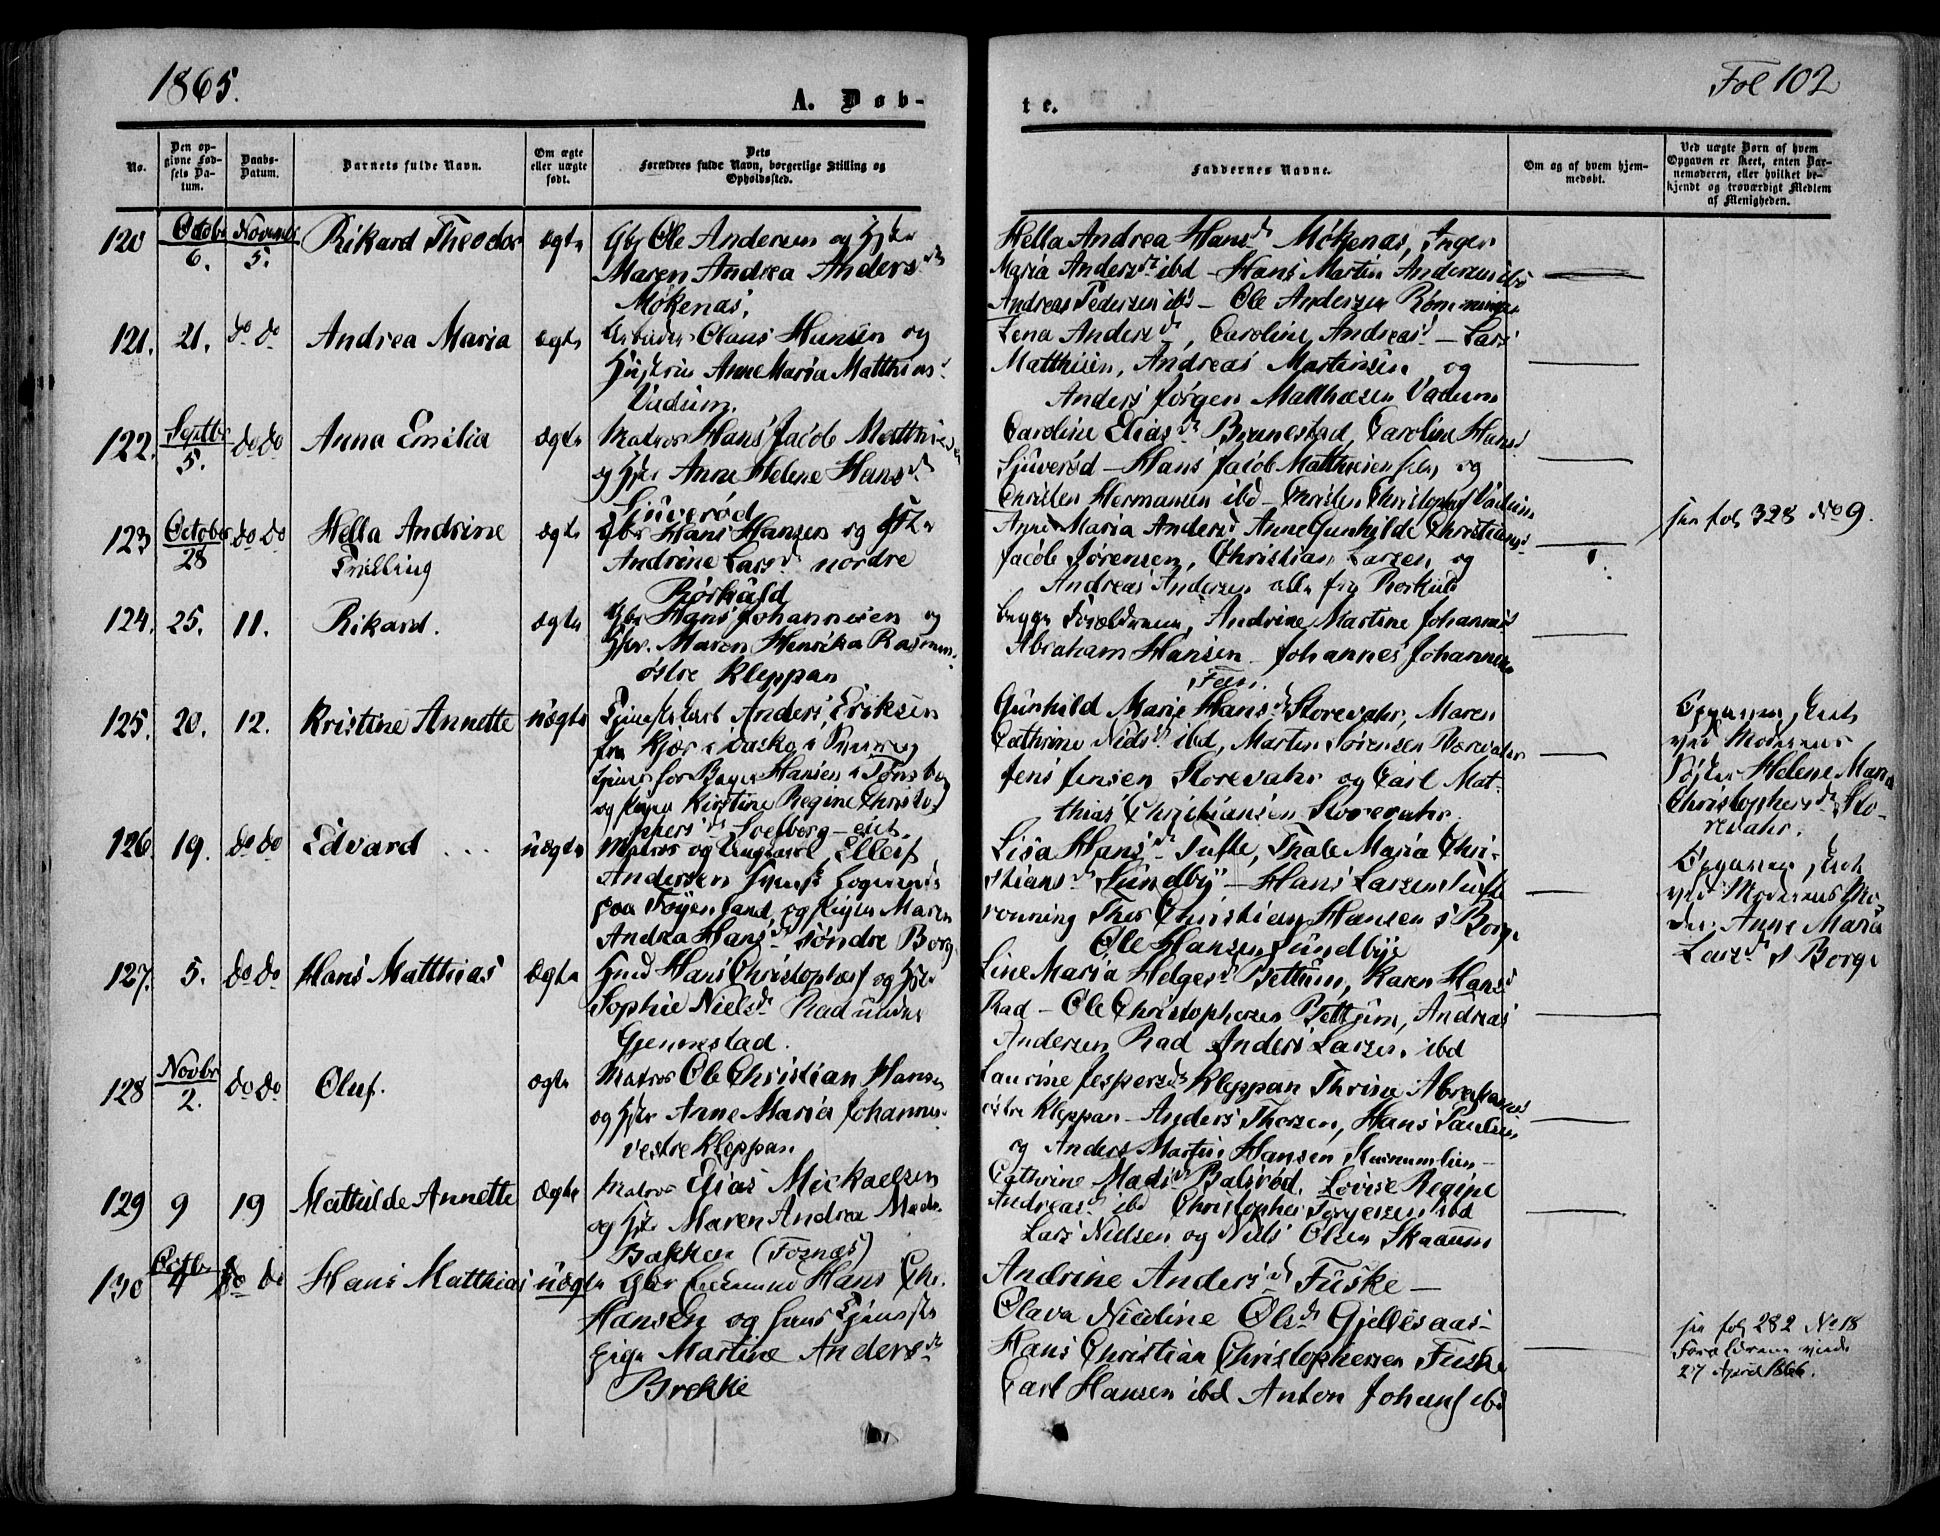 1865.
A. Døb-
te.
Fol 102
No.
Den op-
givne Fød-
sels Da-
tum.
Daabs-
Datum.
Barnets fulde Navn.
Om ægte
eller uægte
født.
Dets
Forældres fulde Navn, borgerlige Stilling og
Opholdssted.
Faddernes Navne.
Om og af hvem hjem-
medøbt.
Ved uægte Børn af hvem
Opgaven er skeet, enten Bar-
nemoderen, eller hvilket be-
kjendt og troværdigt Medlem
af Menigheden.
120
Octobr
6.
Novembr
5.
Rikard Theodor
ægte
Gbr Ole Andersen og Hstr
Maren Andrea Andersd
Møkenas.
Hella Andrea Hansd Møkenas, Inger
Maria Andersd ibd - Hans Martin Andersen ibd
Andreas Pedersen ibd - Ole Andersen
121.
21.
do do
Andrea Maria
ægte
Arbeider Claus Hansen og
Hustru Anne Maria Matthiasd
Vadum.
Lena Andersd, Caroline Andreasd - Lars
Matthisen, Andreas Martinsen, og
Anders Jørgen Matthæsen Vadum
122.
Septbr
5.
do do
Anna Emilia
ægte
Matros Hans Jacob Matthiesen
og Hstr Anne Helene Hansd
Sjuverød
Caroline Eliasd Brunestad, Caroline Hansd
Sjuverød - Hans Jacob Matthiesen og
Christen Hermansen ibd - Christen Christophers Vadum
123
October
28
do do
Hella Andrine
Trilling
ægte
Gbr Hans Hansen og Hstr
Andrine Larsd nordre
Rørkuld
Anne Maria Andersd Anne Gunhilde Christiansd
Jacob Sørensen, Christian Larsen og
Andreas Andersen alle fra Rørkuld
see fol 328 No 9.
124.
25.
11.
Rikard.
ægte
Gbr Hans Johannesen og
Hstr. Maren Henrika Rasmus.
østre Kleppan
begge Forældrene, Andrine Martine Johannisd
Abraham Hansen - Johannes Johannesen
125.
20.
12.
Kristine Annette
uægte
Tjenestekarl Anders Eriksen
fra Kjær i Vaske i
tjener for Bager Hansen i Tønsberg
og Pigen Kirstine Regine Christo
phersd Solberg
Gunhild Marie Hansd Storevahr, Maren
Cathrine Nilsd ibd, Martin Sørensen
Jens Jensen Storevahr og Carl Mat-
thias Christiansen Storevahr.
Opgaven skeet
ved Moderens
Søster Helene Maria
Christophersd Sto-
revahr.
126
19.
do do
Edvard
uægte
Matros og Ungkarl Ellef
Andersen svensk
paa Føyenland, og Pigen Maren
Andrea Hansd søndre Borg.
Lisa Hansd Tufte, Thale Maria Chri-
stiansd Sundby - Hans Larsen Tufte
Thor Christian Hansen S Borge
Ole Hansen Sundbye
Opgaven skeet
ved Moderens Mo-
der Anne Maria
Larsd S Borge
127.
5.
do do
Hans Matthias
ægte
Husmd Hans Christophers og Hstr
Sophie Nielsd Rad under
Gjennestad.
Line Maria Helgesd Bettum, Karen Hansd
Rad - Ole Christophersen Bettum, Andreas
Andersen Rad Anders Larsen ibd
128
Novbr
2.
do do
Oluf.
ægte
Matros Ole Christian Hansen
og Hstr Anne Maria Johannes.
vestre Kleppan
Laurine Jespersd Kleppan Thrine Abrahamsd
østre Kleppan - Anders Thorsen, Hans Paulsen
og Anders Martin Hansen
129
9
19
Mathilde Annette
ægte
Matros Elias Mickaelsen
og Hstr Maren Andrea Mads.
Bakken (Foznæs)
Cathrine Madsd Balsrød, Lovise Regine
Andreasd ibd Christopher Torgersen ibd
Lars Nielsen og Niels Olsen Skaaum
130
Octbr
4
do do
Hans Matthias
uægte
Gbr Hans Chr.
Hansen og hans Tjeneste
pige Martine Andersd
Brekke
Andrine Andersd Fuske -
Olava Nicoline Olsd Gjellesaas-
Hans Christian Christophersen Fuske
Carl Hansen ibd Anton Johans ibd
see fol 282 No 18
Forældrene viede
27 April 1866.